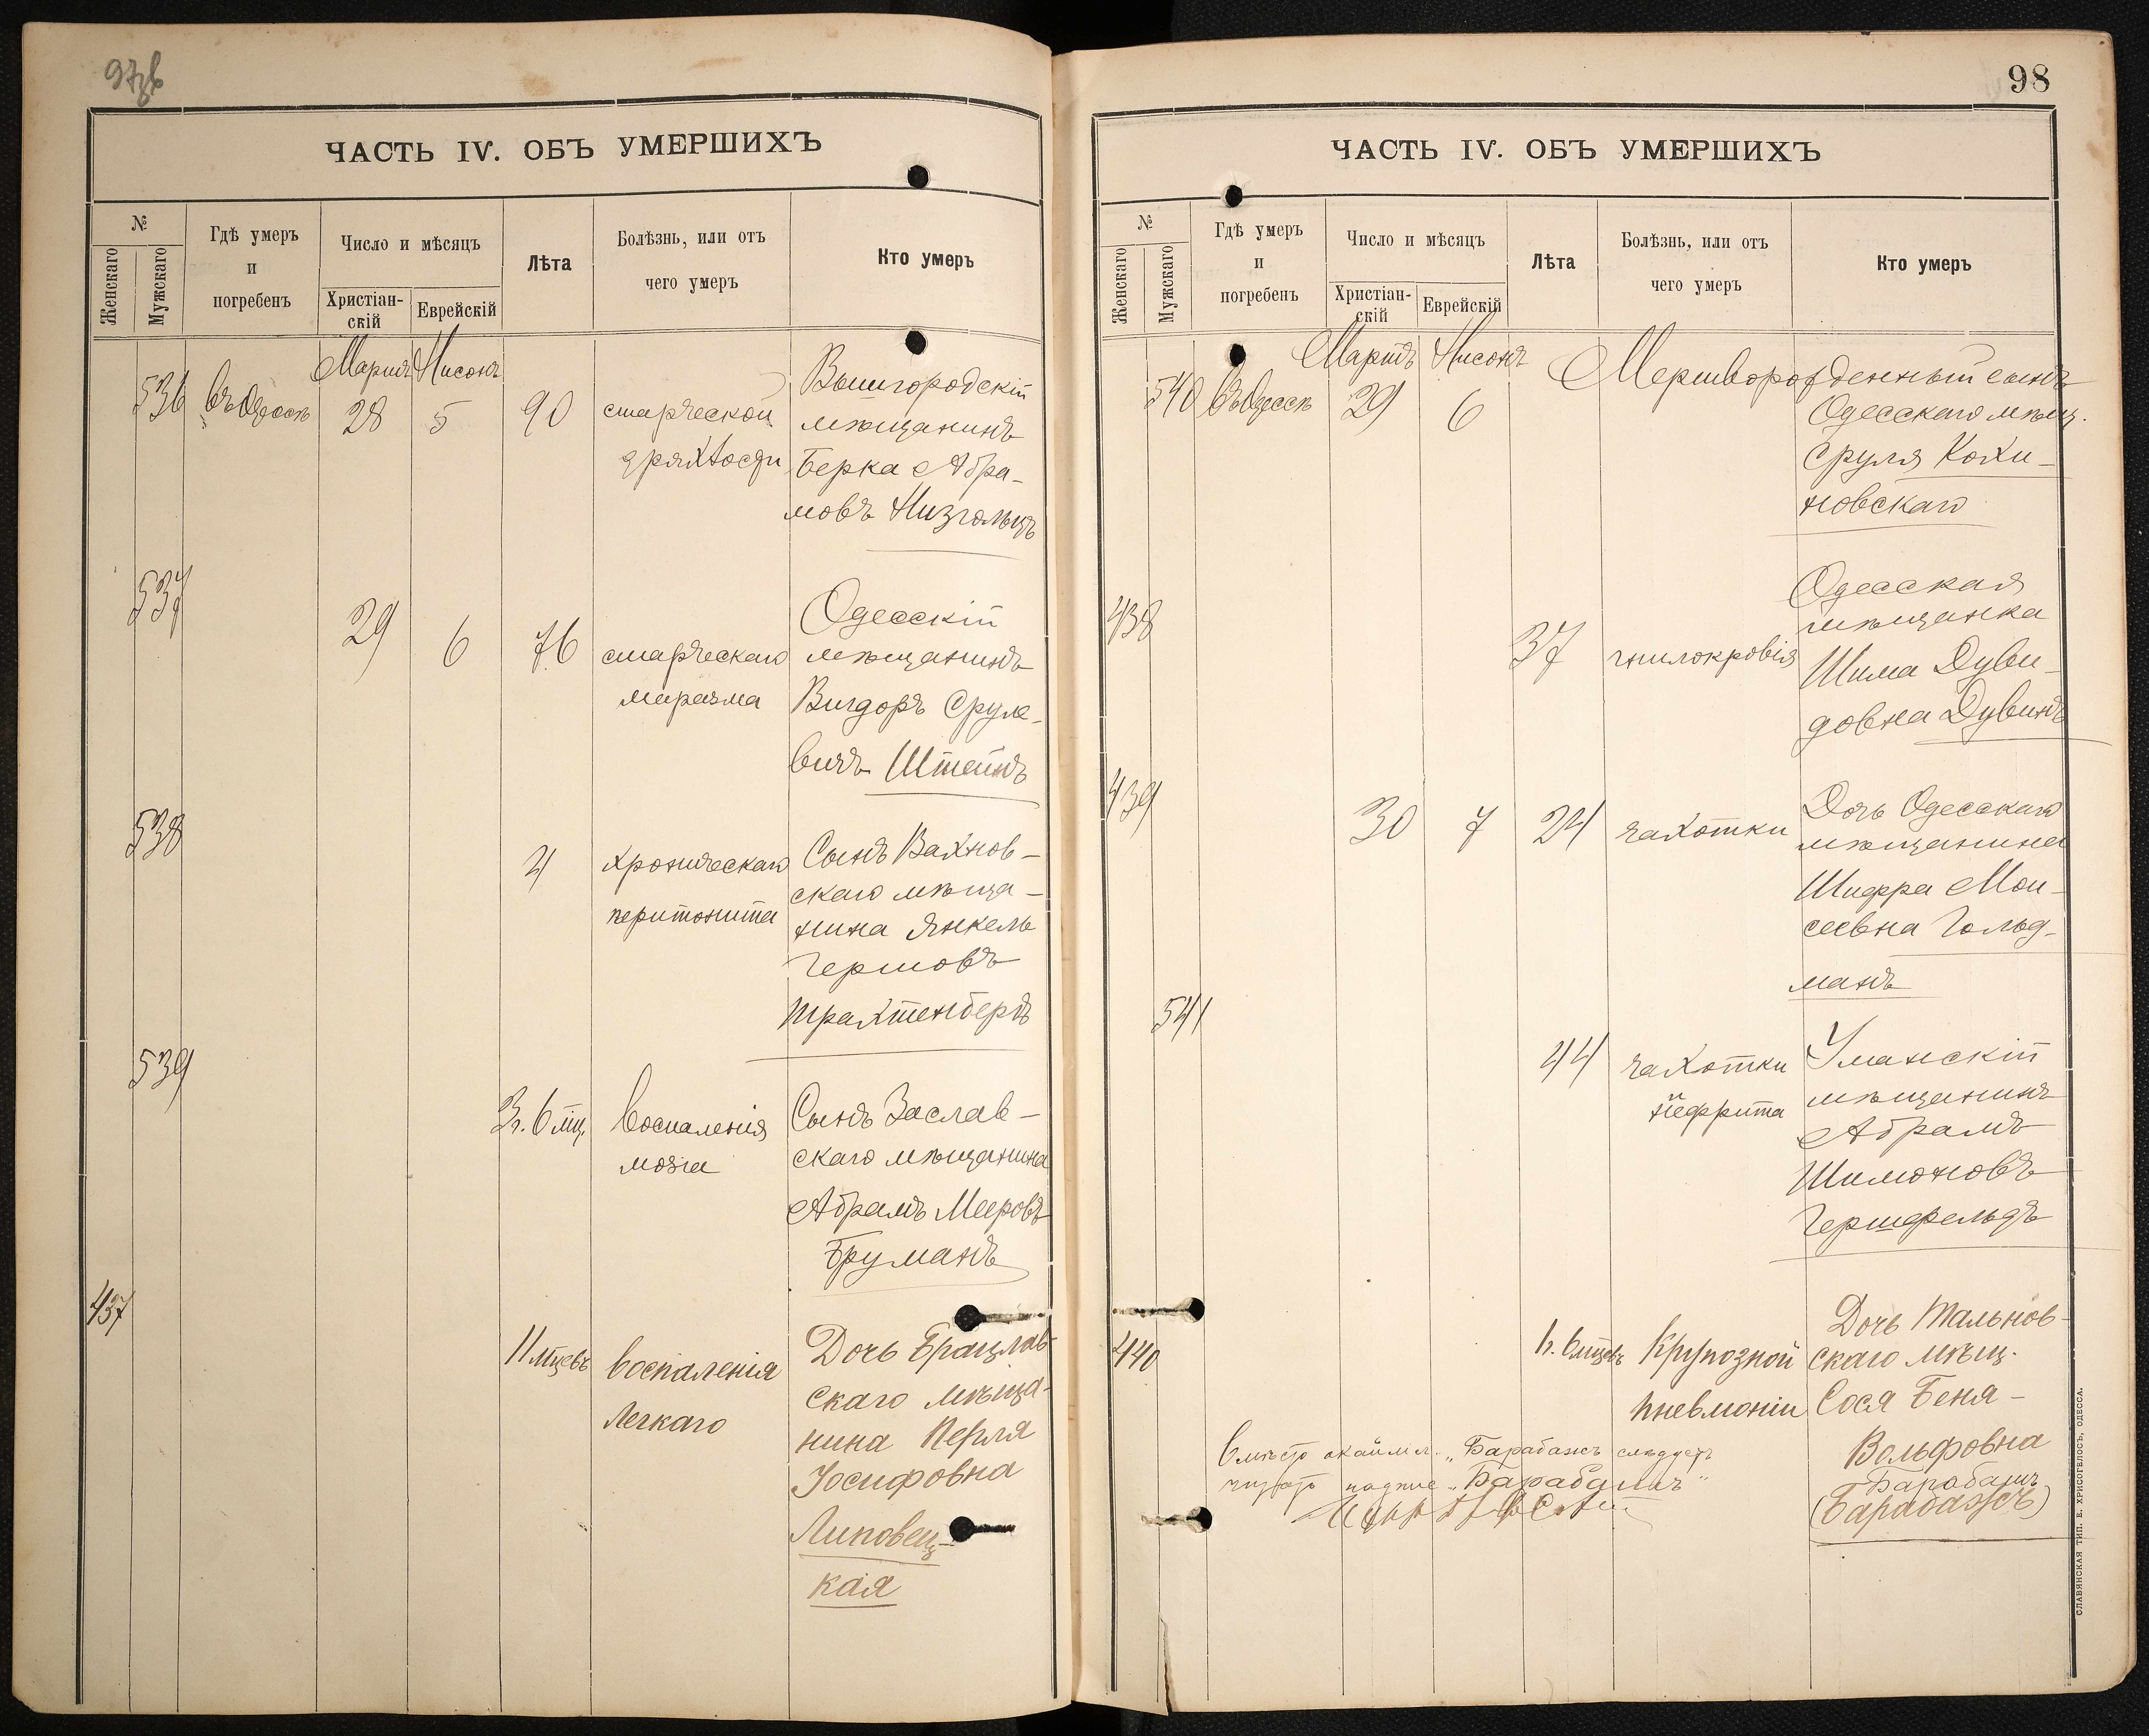 ЧАСТЬ IV. ОБЪ УМЕРШИХЪ
№
Женскаго
Мужскаго
Гдѣ умеръ
и
погребенъ
Число и мѣсяцъ
Христіан-
скій
Еврейскій
Лѣта
Болѣзнь, или отъ
чего умеръ
Кто умеръ
Мартъ Нисонъ
536 въ Одессѣ 28 5 90
старческой
дряхлости
Вышгородскій
мѣщанинъ
Берка Абра-
мовъ Низгольцъ
537
29 6 76
старческаго
маразма
Одесскій
мѣщанинъ
Вигдоръ Сруле-
вичъ Штейнъ
538
4
хроническаго
перитонита
Сынъ Вахнов-
скаго мѣща-
нина Янкель
Гершовъ
Трахтенбергъ
539
3 г. 6 мц.
воспаленія
мозга
Сынъ Заслав-
скаго мѣщанина
Абрамъ Мееровъ
Бруманъ
437
11 мцевъ
воспаленія
легкаго
Дочь Брацлав-
скаго мѣща-
нина Перля
Іосифовна
Липовец-
кая
98
ЧАСТЬ IV. ОБЪ УМЕРШИХЪ
№
Женскаго
Мужскаго
Гдѣ умеръ
и
погребенъ
Число и мѣсяцъ
Христіан-
скій
Еврейскій
Лѣта
Болѣзнь, или отъ
чего умеръ
Кто умеръ
Мартъ Нисонъ
540 въ Одессѣ 29 6
Мертворожденный сынъ
Одесскаго мѣщ.
Сруля Кохи-
новскаго
438
37
гнилокровія
Одесская
мѣщанка
Шима Дуви-
довна Дувинъ
439
30 7 24
чахотки
Дочь Одесскаго
мѣщанина
Шифра Мои-
сеевна Гольд-
манъ
541
44
чахотки
и
нефрита
Уманскій
мѣщанинъ
Абрамъ
Шимоновъ
Гершфельдъ
440
1 г. 6 мцевъ
Крупозной
пневмоніи
Дочь Тальнов-
скаго мѣщ.
Сося Беня-
Вольфовна
Барабашъ
(Барабажъ)
вмѣсто окаймл. „Барабажъ" слѣдуетъ
читать надпис. „Барабашъ"
СЛАВЯНСКАЯ ТИП. Е. ХРИСОГЕЛОСЪ, ОДЕССА.